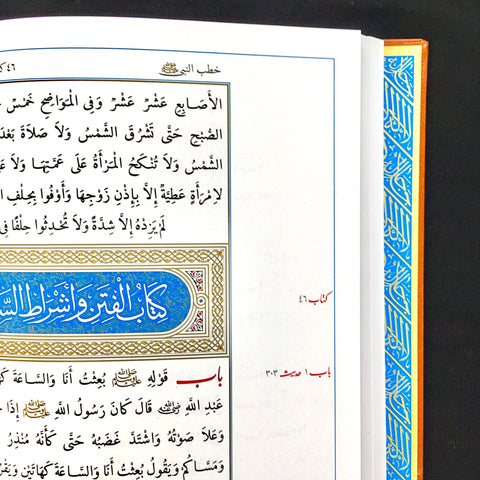 خطب النبي ﷺ
٤٦ ك
الأَصَابِعِ عَشْرٌ عَشْرٌ وَفِي المَوَاضِحِ خَمْسٌ
الصُّبْحِ حَتَّى تَشْرُقَ الشَّمْسُ وَلاَ صَلاَةَ بَعْدَ
الشَّمْسُ وَلاَ تُنْكَحُ المَرْأَةُ عَلَى عَمَّتِهَا وَلاَ
لاِمْرَأَةٍ عَطِيَّةٌ إِلاَّ بِإِذْنِ زَوْجِهَا وَأَوْفُوا بِحِلْفِ
لَمْ يَزِدْهُ إِلاَّ شِدَّةً وَلاَ تُحْدِثُوا حِلْفًا فِي
كِتَابُ الْفِتَنِ وَأَشْرَاطِ
كتاب ٤٦
باب قَوْلِهِ ﷺ بُعِثْتُ أَنَا وَالسَّاعَةَ
باب ١ حديث ٣٠٣
عَبْدِ اللَّهِ قَالَ كَانَ رَسُولُ اللَّهِ ﷺ إِذَا
وَعَلاَ صَوْتُهُ وَاشْتَدَّ غَضَبُهُ حَتَّى كَأَنَّهُ مُنْذِرُ
وَمَسَّاكُمْ وَيَقُولُ بُعِثْتُ أَنَا وَالسَّاعَةَ كَهَاتَيْنِ